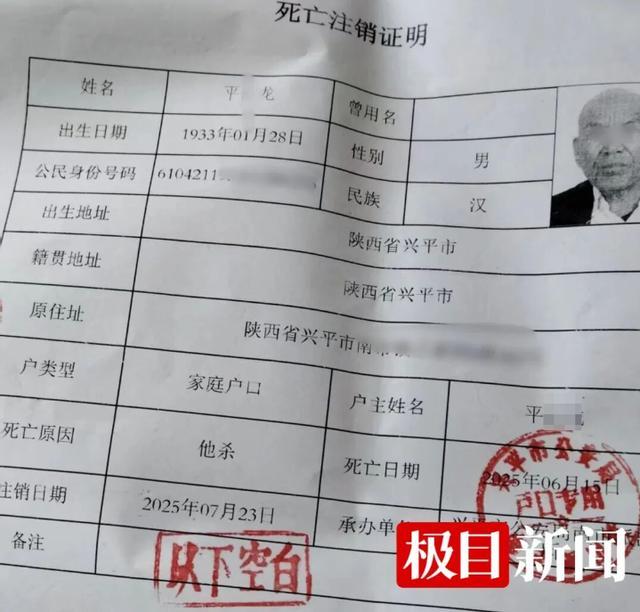 死亡注销证明
姓名 平 龙 曾用名
出生日期 1933年01月28日 性别 男
公民身份号码 6104211 民族 汉
出生地址 陕西省兴平市
籍贯地址 陕西省兴平市
原住址 陕西省兴平市南
户类型 家庭户口 户主姓名 平
死亡原因 他杀 死亡日期 2025年06月15日
注销日期 2025年07月23日 承办单
备注
以下空白
平市公安局
户口专用
极目新闻